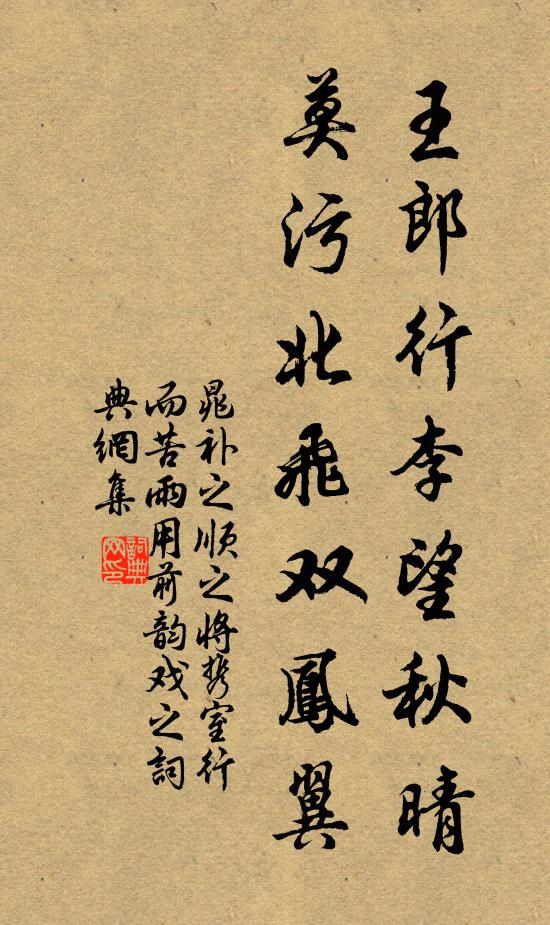 王郎行李望秋晴
莫污北飛双鳳翼
晁补之顺之将携室行
而苦雨用前韵戏之詞
典網集
詞典網印